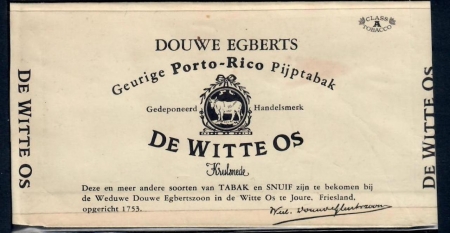 CLASS
A
TOBACCO
DOUWE EGBERTS
Geurige Porto-Rico Pijptabak
Gedeponeerd Handelsmerk
DE WITTE OS
DE WITTE OS
DE WITTE OS
Krulsnede
Deze en meer andere soorten van TABAK en SNUIF zijn te bekomen bij
de Weduwe Douwe Egbertszoon in de Witte Os te Joure. Friesland,
opgericht 1753.